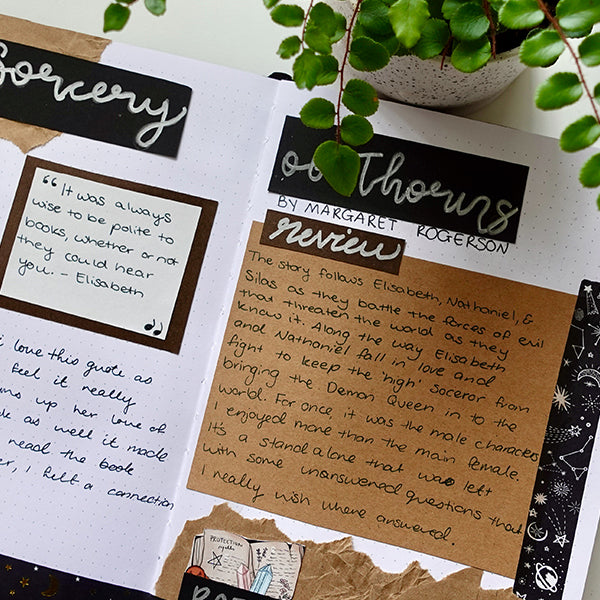 Sorcery
"It was always
wise to be polite to
books, whether or not
they could hear
you. - Elisabeth
"
love this quote as
feel it really
ms up her love of
as well it made
read the book
I felt a connection
of Thorns
BY MARGARET ROGERSON
review
The story follows Elisabeth, Nathaniel, &
Silas as they battle the forces of evil
that threaten the world as they
know it. Along the way Elisabeth
and Nathaniel fall in love and
fight to keep the 'high' soceror from
bringing the Demon Queen in to the
world. For once, it was the male characters
I enjoyed more than the main female.
It's a standalone that was left
with some unanswered questions that
I really wish where answered.
PROTECTION
spells